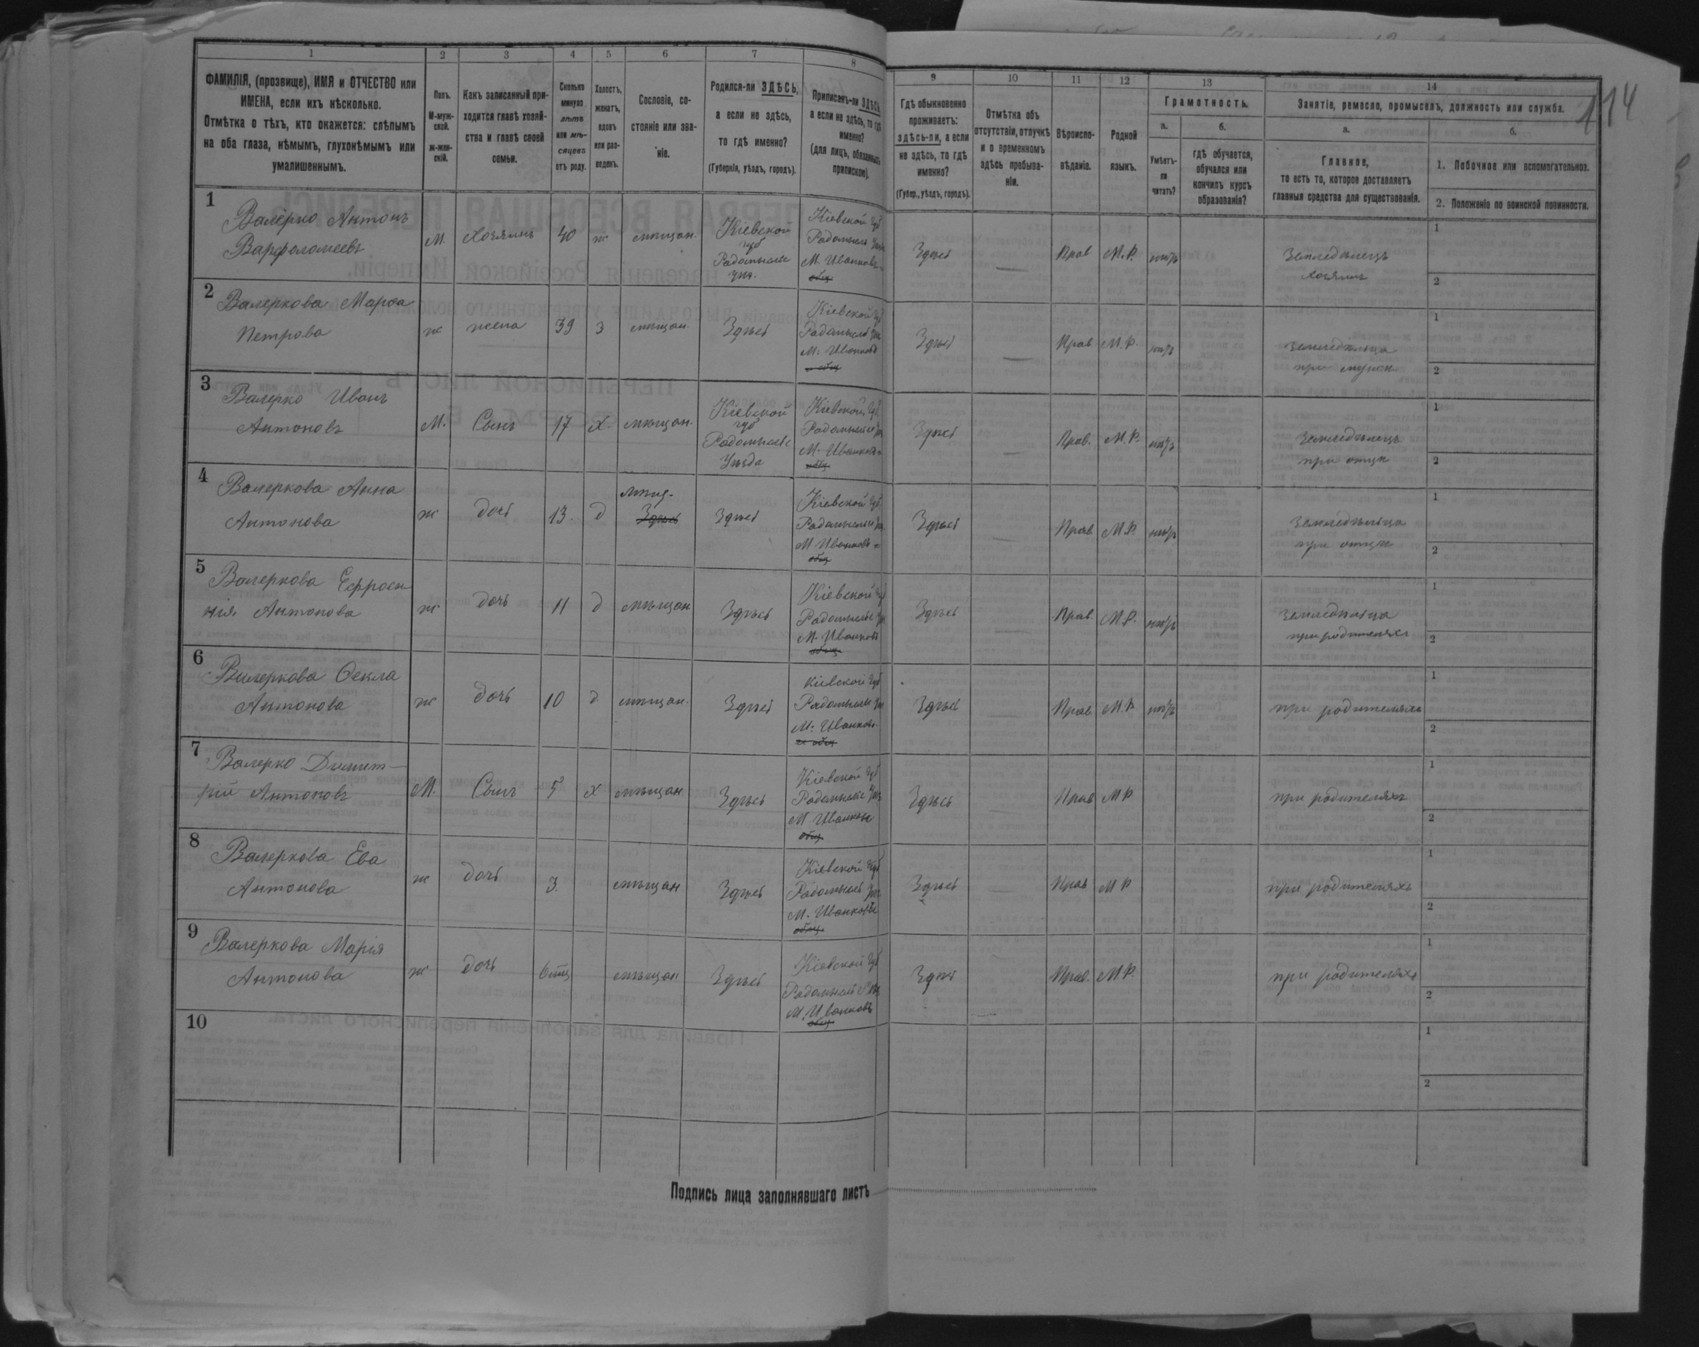 114
1 2 3 4 5 6 7 8 9 10 11 12 13 14
ФАМИЛІЯ, (прозвище), ИМЯ и ОТЧЕСТВО или ИМЕНА, если ихъ нѣсколько.
Отмѣтка о тѣхъ, кто окажется: слѣпымъ на оба глаза, нѣмымъ, глухонѣмымъ или умалишеннымъ.
Полъ.
М-муж-
ской.
ж-жен-
скій.
Какъ записанный при-
ходится главѣ хозяй-
ства и главѣ своей
семьи.
Сколько
минуло
лѣтъ
или мѣ-
сяцевъ
отъ роду.
Холостъ,
женатъ,
вдовъ
или раз-
веденъ.
Сословіе, со-
стояніе или зва-
ніе.
Родился-ли ЗДѢСЬ,
а если не здѣсь,
то гдѣ именно?
(Губернія, уѣздъ, городъ).
Приписанъ-ли ЗДѢСЬ,
а если не здѣсь, то гдѣ
именно?
(для лицъ, обязанныхъ
припиской).
Гдѣ обыкновенно
проживаетъ:
здѣсь-ли, а если
не здѣсь, то гдѣ
именно?
(Губер., уѣздъ, городъ).
Отмѣтка объ
отсутствіи, отлучкѣ
и о временномъ
здѣсь пребыва-
ніи.
Вѣроиспо-
вѣданіе.
Родной
языкъ.
Грамотность.
а.
Умѣетъ-
ли
читать?
б.
гдѣ обучается,
обучался или
кончилъ курсъ
образованія?
Занятіе, ремесло, промыселъ, должность или служба.
а.
Главное,
то есть то, которое доставляетъ
главныя средства для существованія.
б.
1. Побочное или вспомогательное.
2. Положеніе по воинской повинности.
1
Валерко Антонъ
Варфоломеевъ
М. Хозяинъ 40 ж мѣщан.
Кіевской
губ
Радомысльс
Уѣз.
Кіевской Губ
Радомысльс Уѣз
М. Иванковс
общ
Здѣсь Прав М.Р. нѣтъ
Земледѣлецъ
хозяинъ
1
2
2
Валеркова Марѳа
Петрова
ж жена 39 з мѣщан. Здѣсь
Кіевской Губ
Радомысльс Уѣз
М. Иванков
общ
Здѣсь Прав М.Р. нѣтъ
земледѣлица
при мужѣ
1
2
3
Валерко Иванъ
Антоновъ
М. Сынъ 17 х. мѣщан.
Кіевской
губ
Радомысльс
Уѣзда
Кіевской Губ
Радомысльс Уѣз
М. Иванков
общ
Здѣсь Прав. М.Р. нѣтъ
Земледѣлецъ
при отцѣ
1
2
4
Валеркова Анна
Антонова
ж дочь 13. д
мѣщ.
Здѣсь
Здѣсь
Кіевской Губ
Радомысльс Уѣз
М Иванков
общ
Здѣсь Прав М.Р. нѣтъ
Земледѣлица
при отцѣ
1
2
5
Валеркова Ефроси
нія Антонова
ж дочь 11 д мѣщан Здѣсь
Кіевской Губ
Радомысльс Уѣз
М. Иванков
общ
Здѣсь Прав М.Р. нѣтъ
Земледѣлица
при родителяхъ
1
2
6
Валеркова Ѳекла
Антонова
ж дочь 10 д мѣщан. Здѣсь
Кіевской Губ
Радомысльс Уѣз
М. Иванков
общ
Здѣсь Прав М.Р нѣтъ
при родителяхъ
1
2
7
Валерко Димит-
рій Антоновъ
М. Сынъ 5 х мѣщан Здѣсь
Кіевской Губ
Радомысльс Уѣз
М Иванковс
общ
Здѣсь Прав М Р
при родителяхъ
1
2
8
Валеркова Ева
Антонова
ж дочь 3 мѣщан Здѣсь
Кіевской Губ
Радомысльс Уѣз
М. Иванковс
общ
Здѣсь Прав М Р
при родителяхъ
1
2
9
Валеркова Марія
Антонова
ж дочь 6 мѣщан Здѣсь
Кіевской Губ
Радомысльс Уѣз
М. Иванков
общ
Здѣсь Прав. М.Р
при родителяхъ
1
2
10
1
2
Подпись лица заполнявшаго листъ